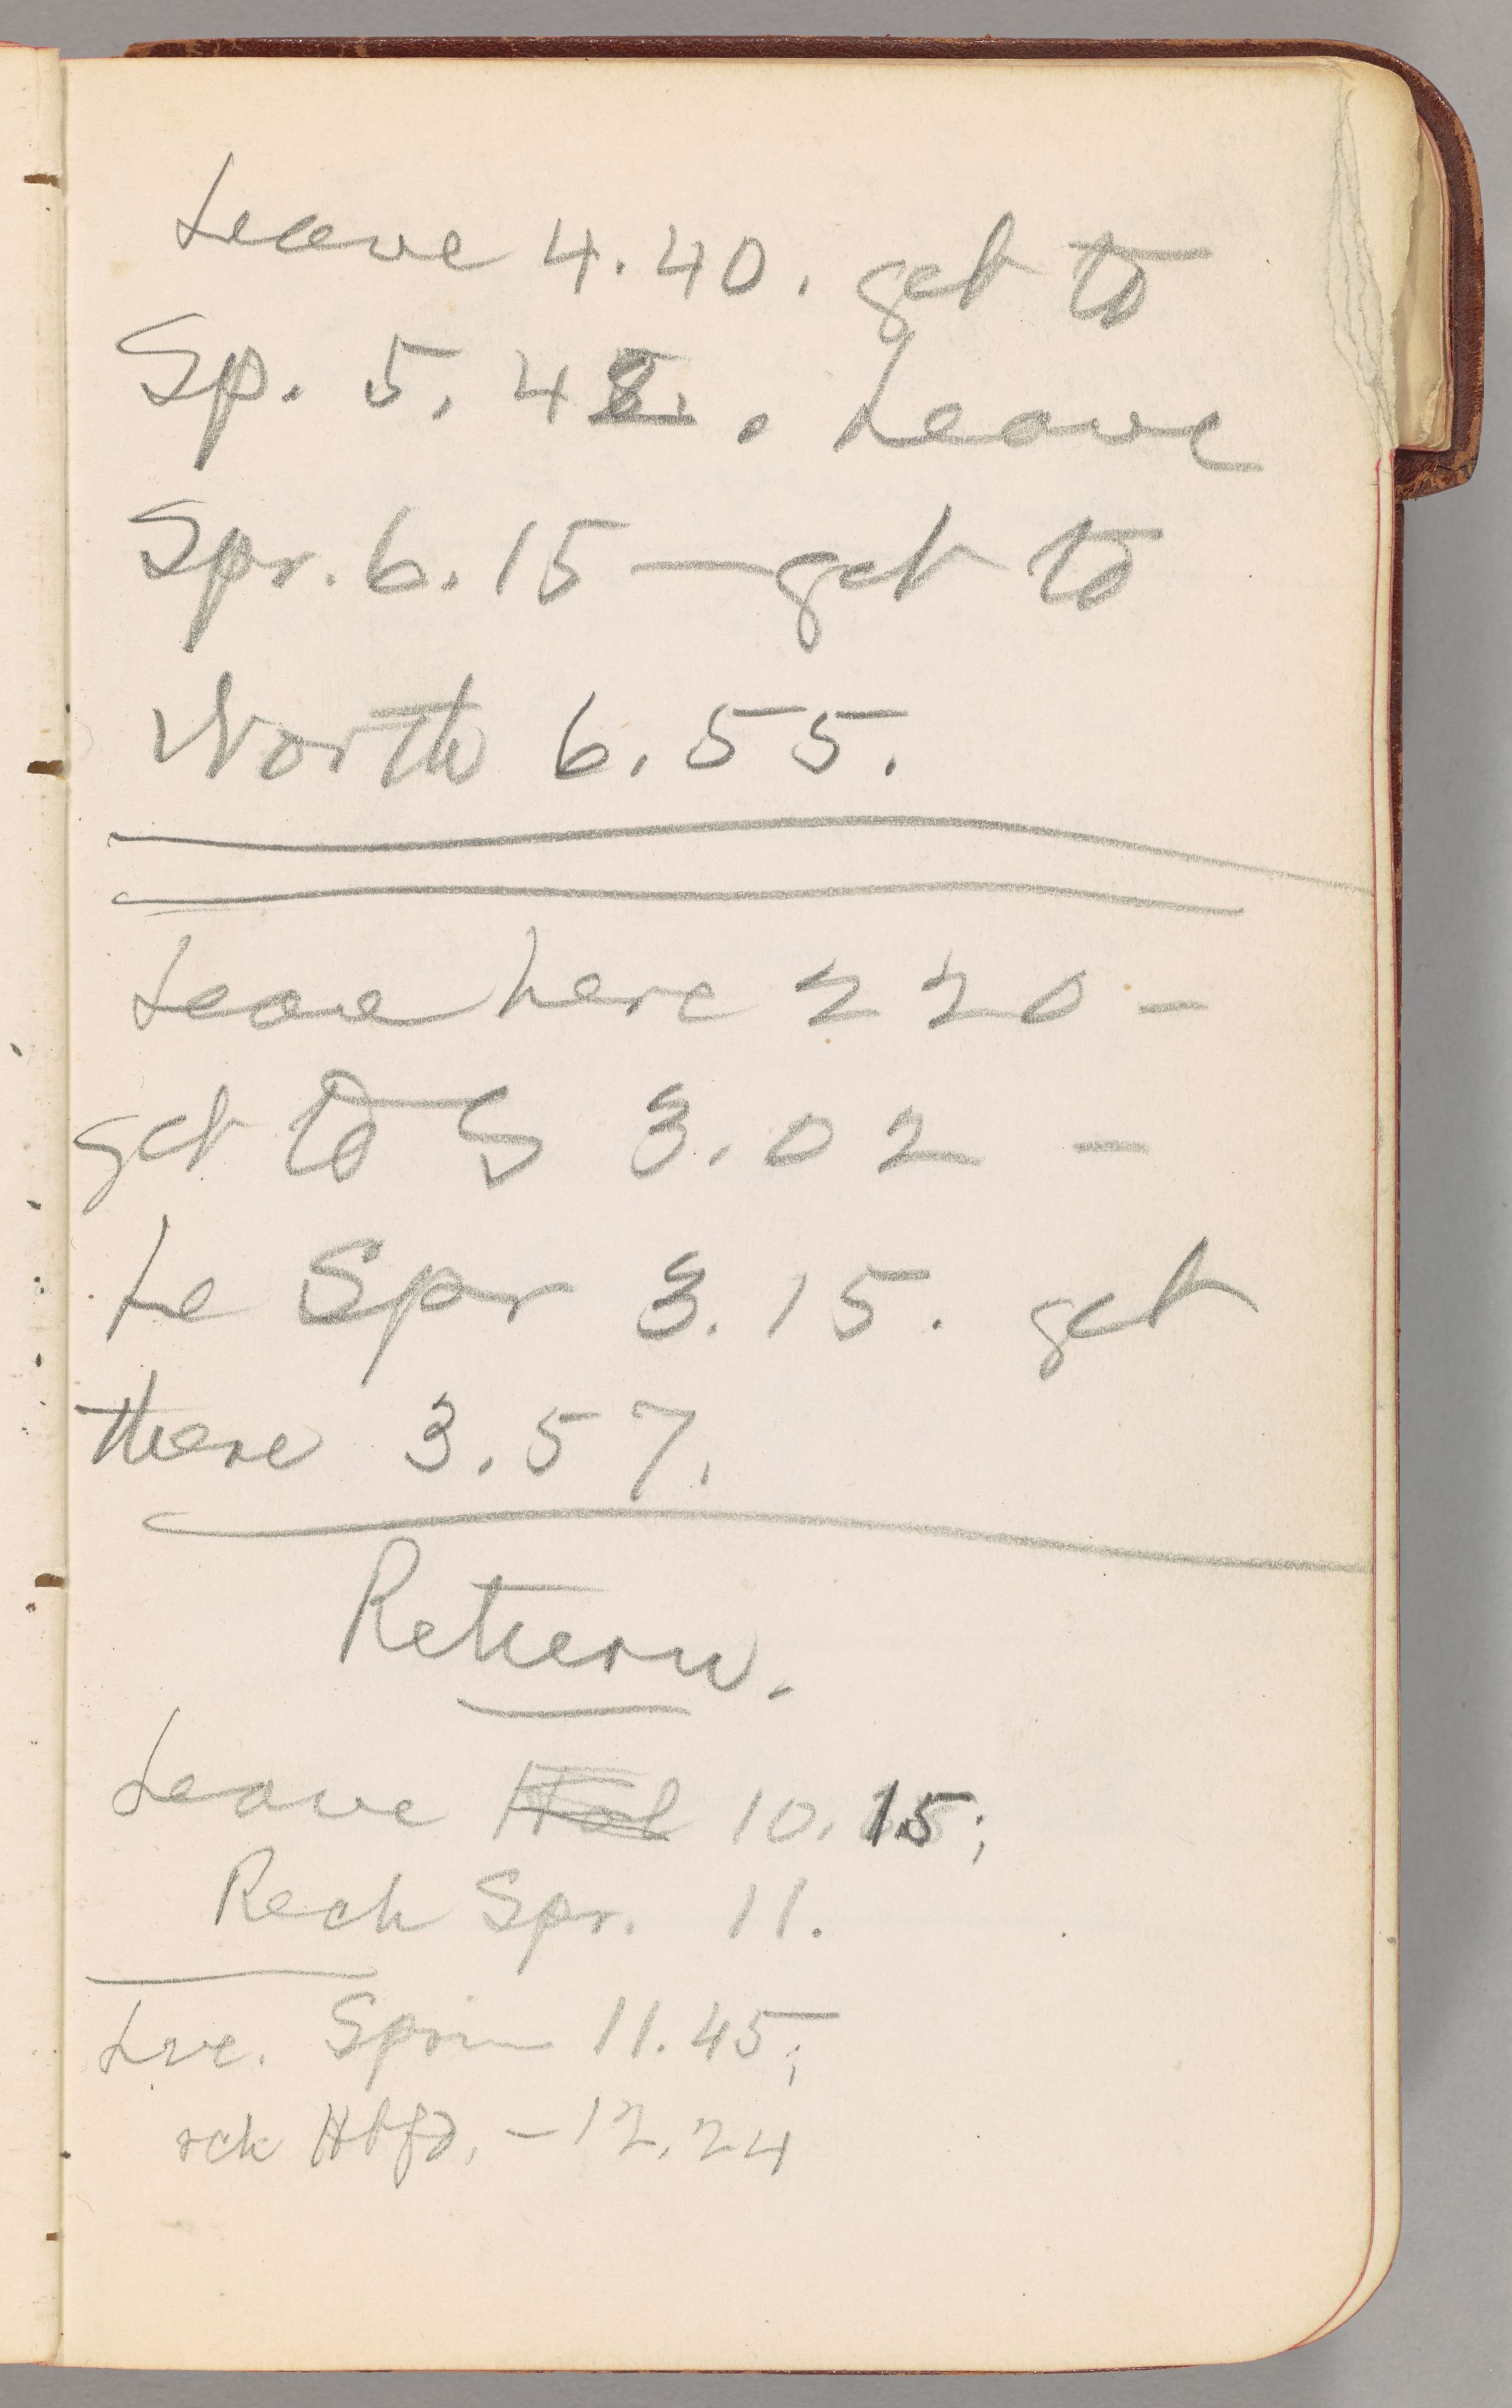 Leave 4.40. get to
Sp. 5.42. . Leave
Spr. 6.15 — get to
North 6.55.
Leave here 2 20 –
get to S 3.02 –
Le Spr 3.15. get
there 3.57.
Return.
Leave Hol 10.15;
Rech Spr. 11.
Lve. Sprin 11.45;
rch Htfd. – 12.24